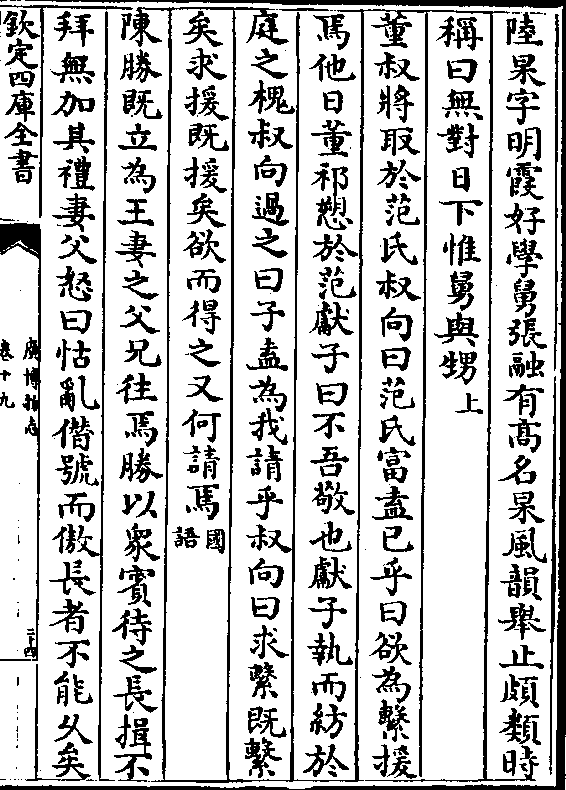 陸杲字明霞好學舅張融有髙名杲風韻舉止頗類時
稱曰無對日下惟舅與甥上
董叔將取於范氏叔向曰范氏富盍已乎曰欲為繫援
焉他日董祁愬於范獻子曰不吾敬也獻子執而紡於
庭之槐叔向過之曰子盍為我請乎叔向曰求繫既繫
矣求援既援矣欲而得之又何請焉國語
陳勝既立為王妻之父兄往焉勝以衆賓待之長揖不
拜無加其禮妻父怒曰怙亂僭號而傲長者不能久矣
欽定四庫全書
廣博物志
卷十九
二十四